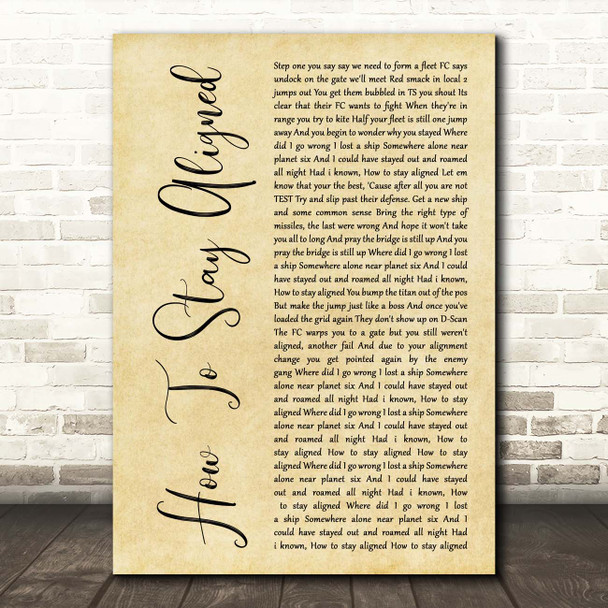 How To Stay Aligned
Step one you say say we need to form a fleet FC says
undock on the gate we'll meet Red smack in local 2
jumps out You get them bubbled in TS you shout Its
clear that their FC wants to fight When they're in
range you try to kite Half your fleet is still one jump
away And you begin to wonder why you stayed Where
did I go wrong I lost a ship Somewhere alone near
planet six And I could have stayed out and roamed
all night Had i known, How to stay aligned Let em
know that your the best, 'Cause after all you are not
TEST Try and slip past their defense. Get a new ship
and some common sense Bring the right type of
missiles, the last were wrong And hope it won't take
you all to long And pray the bridge is still up And you
pray the bridge is still up Where did I go wrong I lost
a ship Somewhere alone near planet six And I could
have stayed out and roamed all night Had i known,
How to stay aligned You bump the titan out of the pos
But make the jump just like a boss And once you've
loaded the grid again They don't show up on D-Scan
The FC warps you to a gate but you still weren't
aligned, another fail And due to your alignment
change you get pointed again by the enemy
gang Where did I go wrong I lost a ship Somewhere
alone near planet six And I could have stayed out
and roamed all night Had i known, How to stay
aligned Where did I go wrong I lost a ship Somewhere
alone near planet six And I could have stayed out
and roamed all night Had i known, How to
stay aligned How to stay aligned How to stay
aligned Where did I go wrong I lost a ship Somewhere
alone near planet six And I could have stayed
out and roamed all night Had i known, How
to stay aligned Where did I go wrong I lost
a ship Somewhere alone near planet six And I
could have stayed out and roamed all night Had
i known, How to stay aligned How to stay aligned